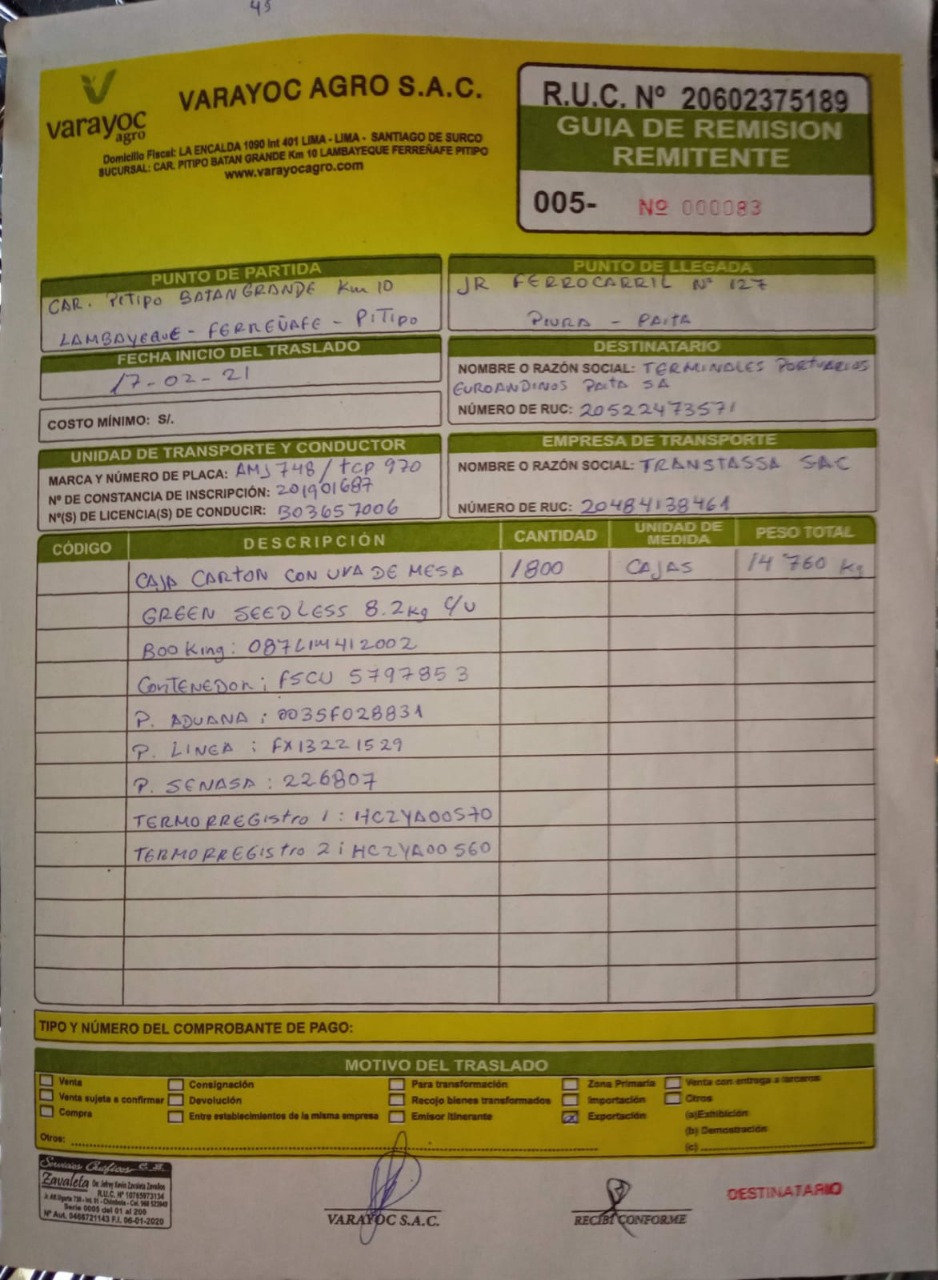 45
varayoc
agro
VARAYOC AGRO S.A.C.
Domicilio Fiscal: LA ENCALDA 1090 Int 401 LIMA - LIMA - SANTIAGO DE SURCO
SUCURSAL: CAR. PITIPO BATAN GRANDE Km 10 LAMBAYEQUE FERREÑAFE PITIPO
www.varayocagro.com
R.U.C. Nº 20602375189
GUIA DE REMISION
REMITENTE
005- Nº 000083
PUNTO DE PARTIDA
CAR. PITIPO BATANGRANDE Km 10
LAMBAYEQUE - FERREÑAFE - PITIPO
PUNTO DE LLEGADA
JR FERROCARRIL Nº 127
PIURA - PAITA
FECHA INICIO DEL TRASLADO
17-02-21
COSTO MÍNIMO: S/.
DESTINATARIO
NOMBRE O RAZÓN SOCIAL: TERMINALES PORTUARIOS
EUROANDINOS PAITA SA
NÚMERO DE RUC: 20522473571
UNIDAD DE TRANSPORTE Y CONDUCTOR
MARCA Y NÚMERO DE PLACA: AMJ 748 / TCP 970
Nº DE CONSTANCIA DE INSCRIPCIÓN: 201901687
Nº(S) DE LICENCIA(S) DE CONDUCIR: B03657006
EMPRESA DE TRANSPORTE
NOMBRE O RAZÓN SOCIAL: TRANSTASSA SAC
NÚMERO DE RUC: 20484138461
CÓDIGO DESCRIPCIÓN CANTIDAD UNIDAD DE MEDIDA PESO TOTAL
CAJA CARTON CON UVA DE MESA 1800 CAJAS 14'760 Kg
GREEN SEEDLESS 8.2Kg C/U
BooKing: 087LIM412002
CONTENEDOR: FSCU 5797853
P. ADUANA: 0035F028831
P. LINEA: FX13221529
P. SENASA: 226807
TERMORREGISTRO 1: HCZYA00570
TERMORREGISTRO 2: HCZYA00560
TIPO Y NÚMERO DEL COMPROBANTE DE PAGO:
MOTIVO DEL TRASLADO
Venta Consignación Para transformación Zona Primaria Venta con entrega a terceros
Venta sujeta a confirmar Devolución Recojo bienes transformados Importación Otros
Compra Entre establecimientos de la misma empresa Emisor Itinerante Exportación (a)Exhibición
(b) Demostración
Otros: (c)
Servicios Gráficos
Zavaleta De: Jefrey Kevin Zavaleta Zavaleta
R.U.C. Nº 10765973134
Serie 0005 del 01 al 200
Nº Aut. 0468721143 F.I. 06-01-2020
VARAYOC S.A.C.
RECIBI CONFORME
DESTINATARIO